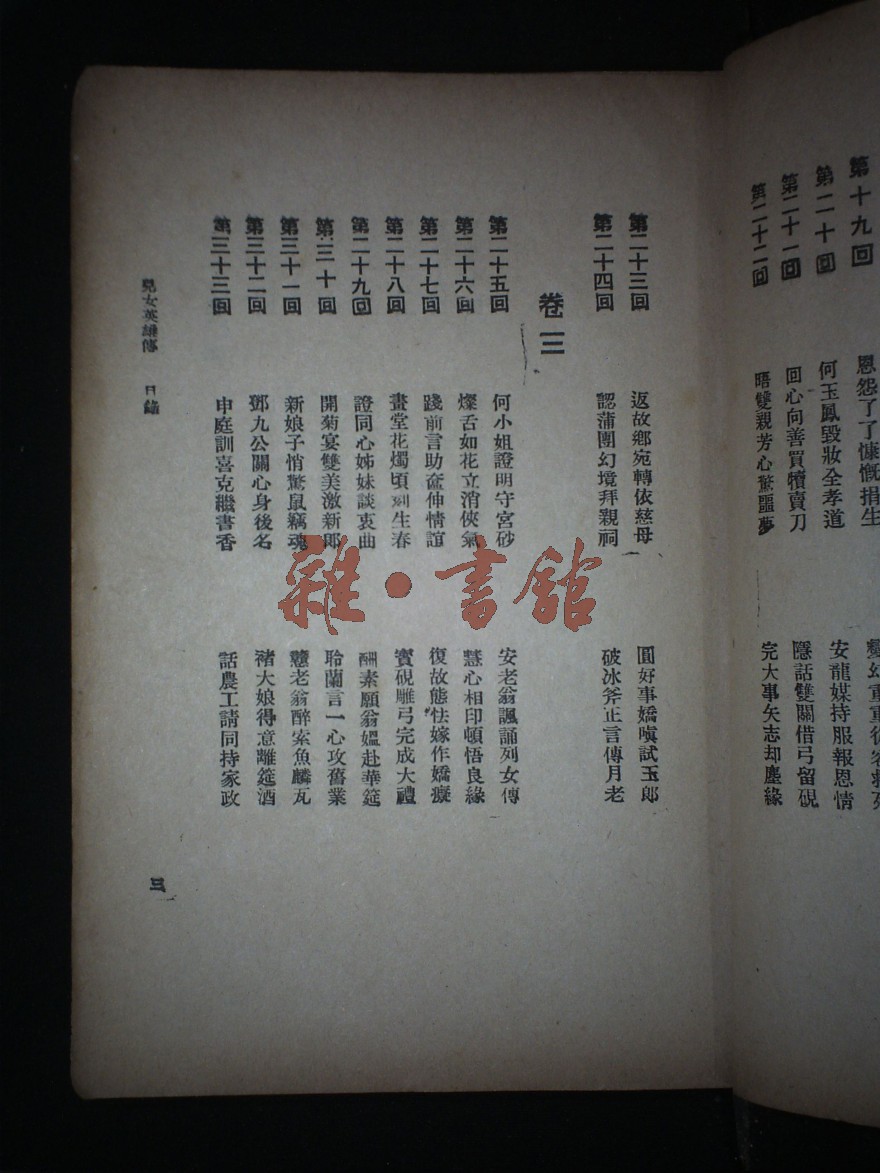 第十九回 恩怨了了慷慨捐生
第二十回 何玉鳳毀妝全孝道 安龍媒持服報恩情
第二十一回 回心向善買犢賣刀 隱話雙關借弓留硯
第二十二回 晤雙親芳心驚噩夢 完大事矢志却塵緣
第二十三回 返故鄉宛轉依慈母 圓好事嬌嗔試玉郎
第二十四回 認蒲團幻境拜親祠 破冰斧正言傳月老
卷三
第二十五回 何小姐證明守宮砂 安老翁諷誦列女傳
第二十六回 燦舌如花立消俠氣 慧心相印頓悟良緣
第二十七回 踐前言助奩伸情誼 復故態怯嫁作嬌癡
第二十八回 畫堂花燭頃刻生春 寳硯雕弓完成大禮
第二十九回 證同心姊妹談衷曲 酬素願翁媼赴華筵
第三十回 開菊宴雙美激新郎 聆蘭言一心攻舊業
第三十一回 新娘子悄驚鼠竊魂 戇老翁醉索魚鱗瓦
第三十二回 鄧九公關心身後名 褚大娘得意離筵酒
第三十三回 申庭訓喜克繼書香 話農工請同持家政
兒女英雄傳 目錄
三
雜·書館